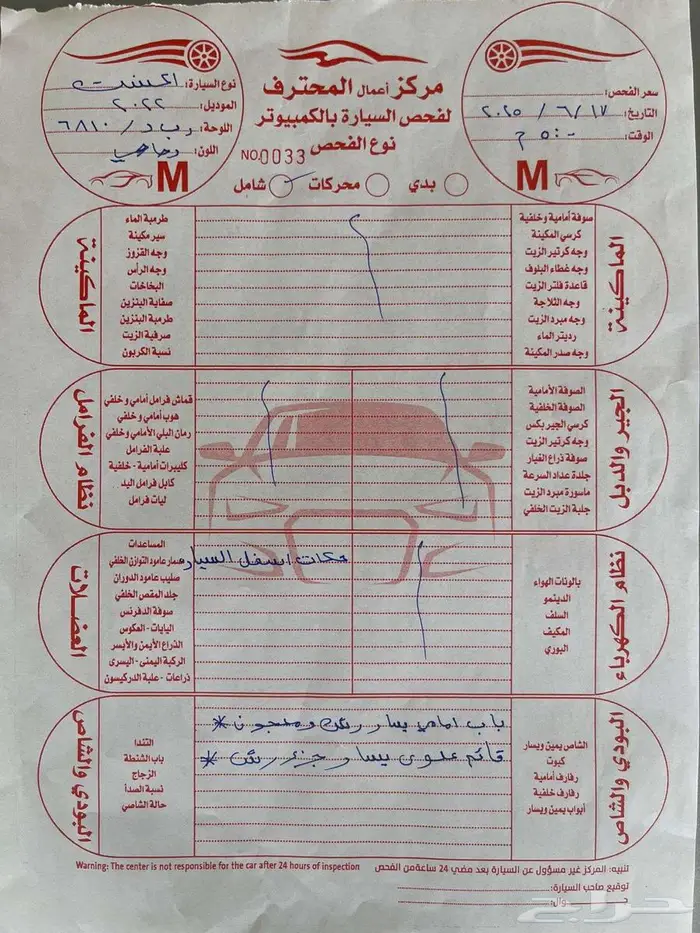 مركز أعمال المحترف
لفحص السيارة بالكمبيوتر
نوع الفحص
NO.0033
بدي
محركات
شامل
سعر الفحص:
التاريخ: ٢٠٢٥ / ٦ / ١٧
الوقت: ٥:٠٠ م
M
نوع السيارة: اكسنت
الموديل: ٢٠٢٢
اللوحة: ٦٨١٠
اللون: رصاصي
M
الماكينة
صوفة أمامية وخلفية
كرسي المكينة
وجه كرتير الزيت
وجه غطاء البلوف
قاعدة فلتر الزيت
وجه الثلاجة
وجه مبرد الزيت
رديتر الماء
وجه صدر المكينة
طرمبة الماء
سير مكينة
وجه القزوز
وجه الرأس
البخاخات
صفاية البنزين
طرمبة البنزين
صرفية الزيت
نسبة الكربون
الماكينة
الجير والدبل
الصوفة الأمامية
الصوفة الخلفية
كرسي الجير بكس
وجه كرتير الزيت
صوفة ذراع الغيار
جلدة عداد السرعة
ماسورة مبرد الزيت
جلبة الزيت الخلفي
قماش فرامل أمامي وخلفي
هوب أمامي وخلفي
رمان البلي الأمامي وخلفي
علبة الفرامل
كليبرات أمامية - خلفية
كابل فرامل اليد
ليات فرامل
نظام الفرامل
نظام الكهرباء
بالونات الهواء
الدينمو
السلف
المكيف
البوري
المساعدات
مسمار عامود التوازن الخلفي
صليب عامود الدوران
جلد المقص الخلفي
صوفة الدفرنس
اليايات - العكوس
الذراع الأيمن والأيسر
الركبة اليمنى - اليسرى
ذراعات - علبة الدركيسون
حكات اسفل السياره
العضلات
البودي والشاص
الشاص يمين ويسار
كبوت
رفارف أمامية
رفارف خلفية
أبواب يمين ويسار
* باب امامي يسار رش ومعجون
* قائم علوي يسار جزء رش
التندا
باب الشنطة
الزجاج
نسبة الصدأ
حالة الشاصي
البودي والشاص
تنبيه: المركز غير مسؤول عن السيارة بعد مضي 24 ساعة من الفحص
Warning: The center is not responsible for the car after 24 hours of inspection
توقيع صاحب السيارة:
حراج